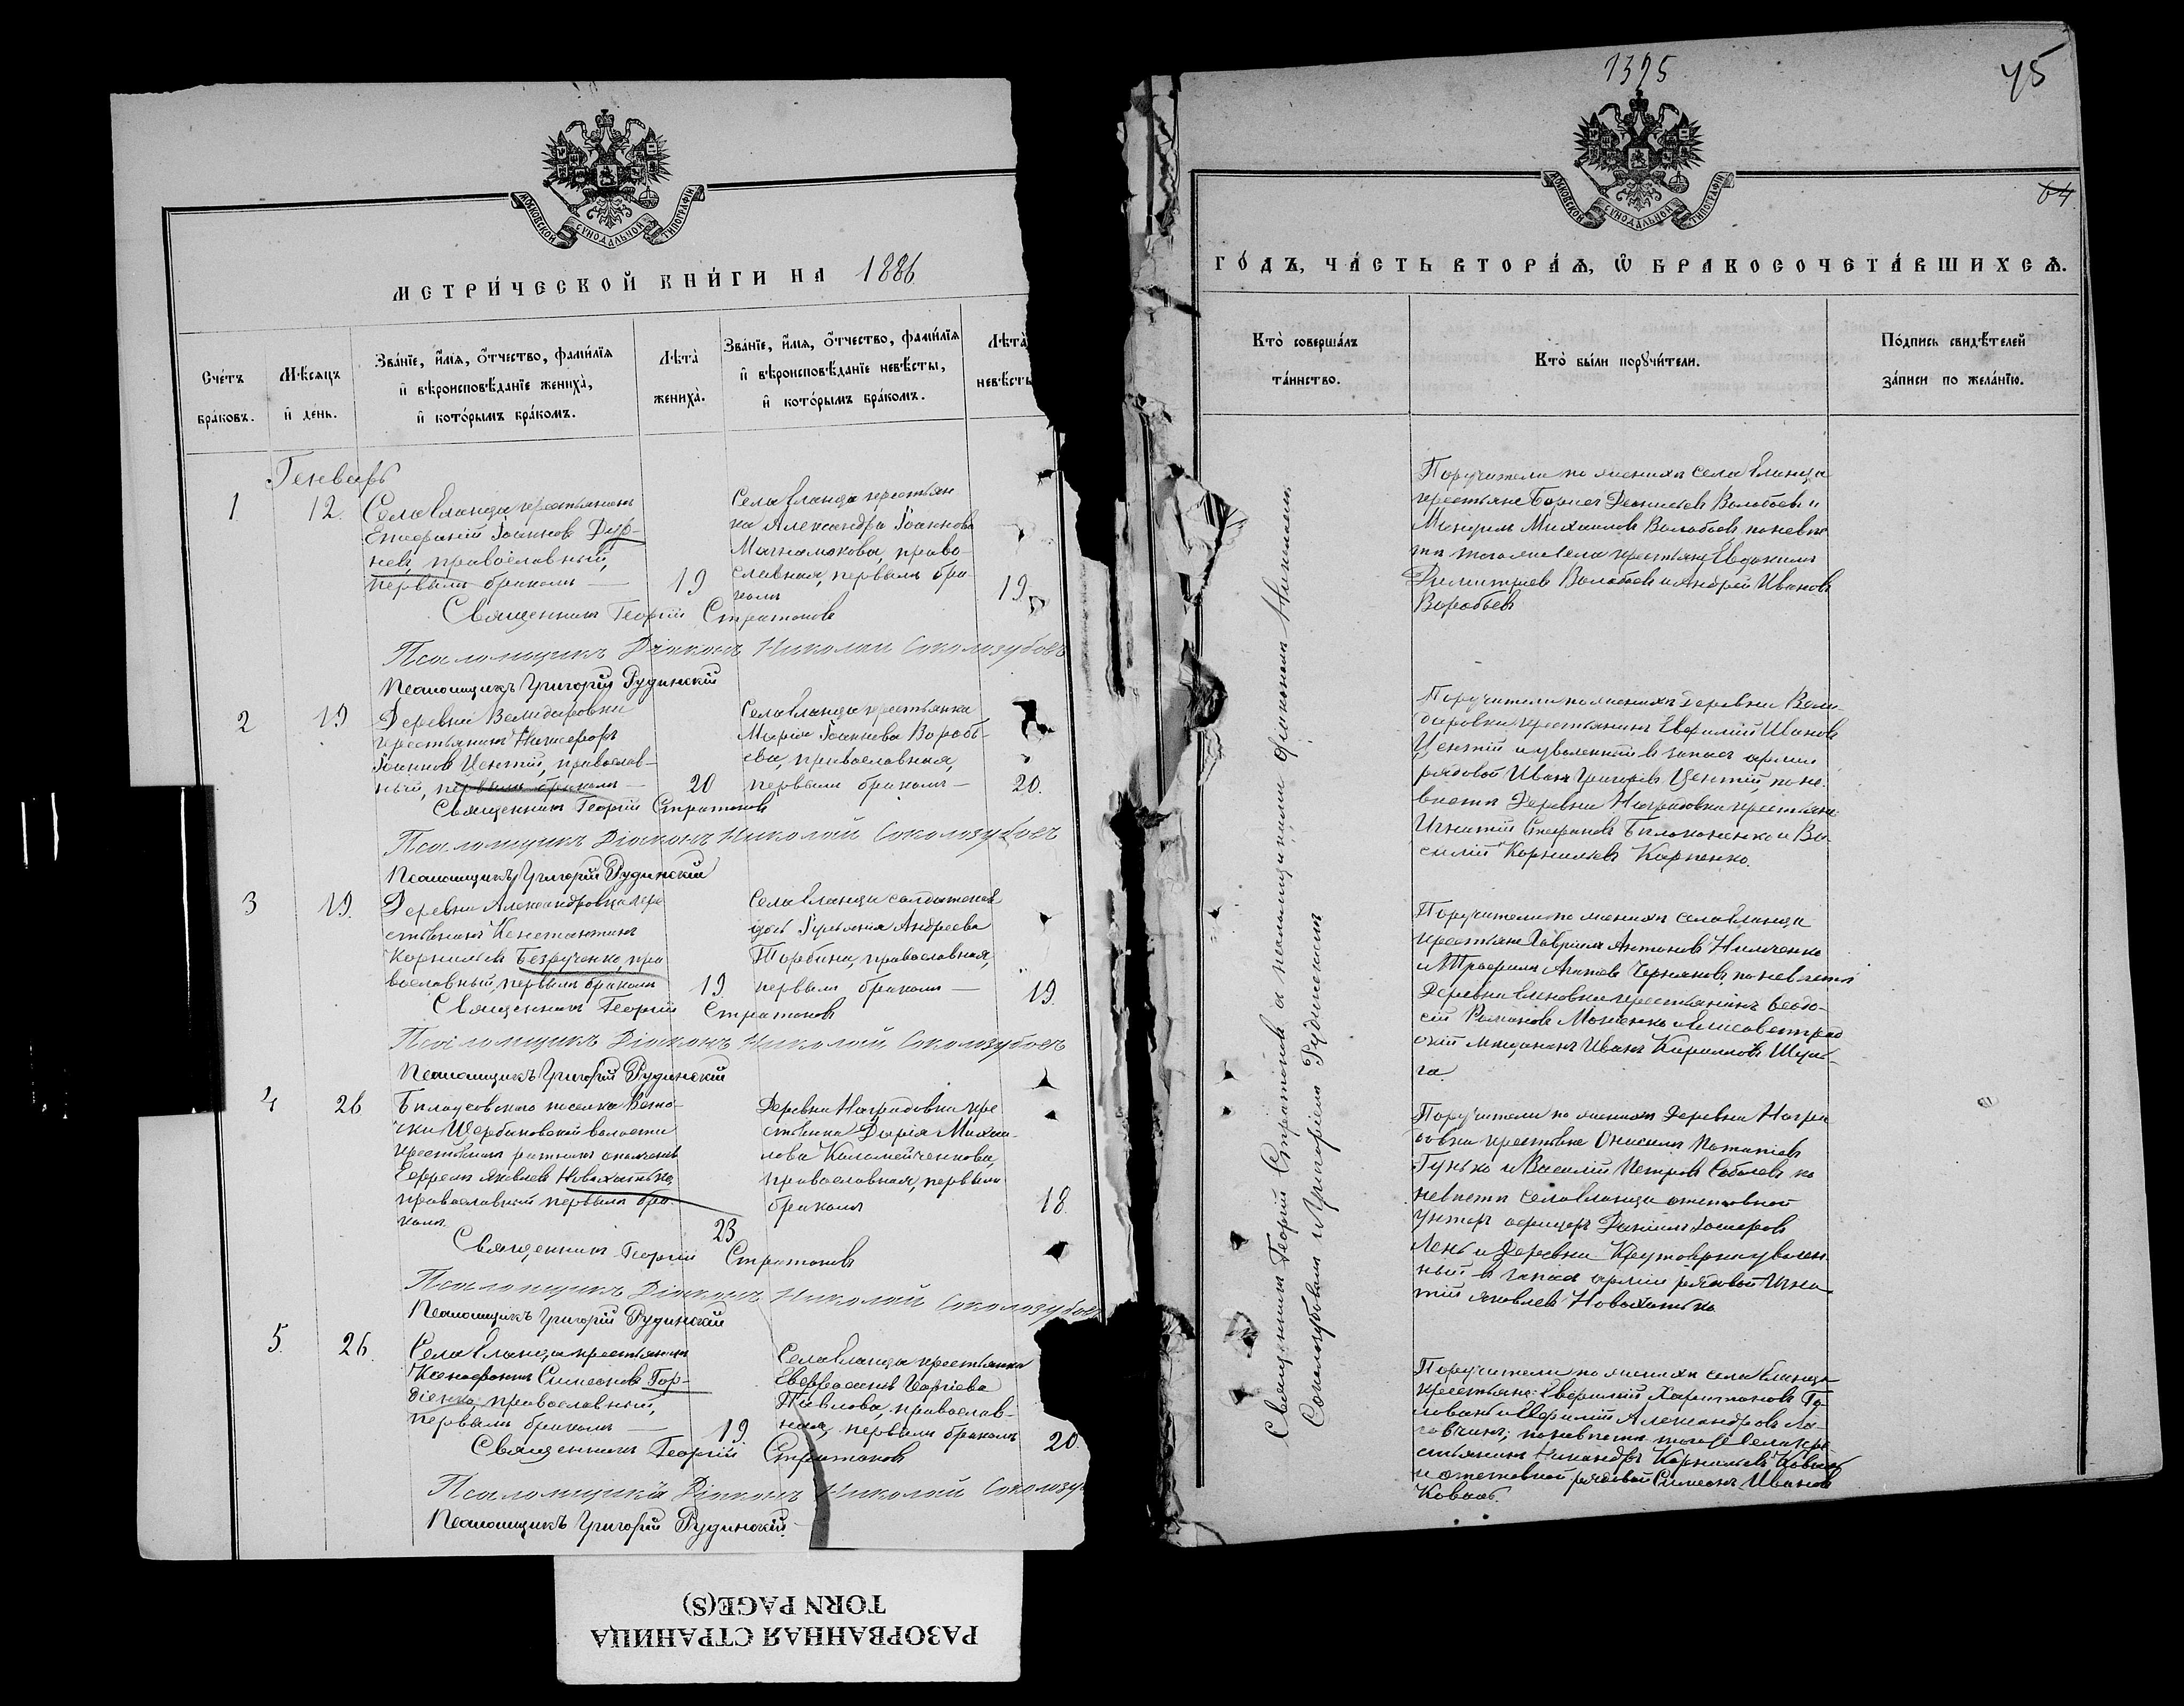 МОСКОВСКОЙ СУНОДАЛЬНОЙ ТИПОГРАФІИ
МЕТРИЧЕСКОЙ КНИГИ НА 1886
Счетъ браковъ.
Мѣсяцъ и день.
Званіе, имя, отчество, фамилія
и вѣроисповѣданіе жениха,
и которымъ бракомъ.
Лѣта
жениха.
Званіе, имя, отчество, фамилія
и вѣроисповѣданіе невѣсты,
и которымъ бракомъ.
Лѣта
невѣсты
Генварь
1
12.
Села Еланца крестьянинъ
Епифаній Іоанновъ Дур-
невъ, православный,
первымъ бракомъ —
19
Села Еланца крестьян
ка Александра Іоаннова
право-
славная, первымъ бра-
комъ
19.
Священникъ Георгій Стратоновъ
Псаломщикъ Діаконъ Николай Соколозубовъ
Псаломщикъ Григорій Рудинскій
2
19
Деревни Велидаровки
крестьянинъ Никифоръ
Іоанновъ Центій, православ-
ный, первымъ бракомъ —
20
Села Еланца крестьянка
Марія Іоаннова Воробь-
ева, православная,
первымъ бракомъ —
20.
Священникъ Георгій Стратоновъ
Псаломщикъ Діаконъ Николай Соколозубовъ
Псаломщикъ Григорій Рудинскій
3
19.
Деревни Александровки кре
стьянинъ Константинъ
Корнильевъ Безрученко, пра
вославный, первымъ бракомъ
19
Села Еланца солдатская
дочь Іуліанія Андреева
Торбина, православная,
первымъ бракомъ —
19.
Священникъ Георгій Стратоновъ
Псаломщикъ Діаконъ Николай Соколозубовъ
Псаломщикъ Григорій Рудинскій
4
26
Бѣлоусовскаго поселка
Щербановской волости
крестьянинъ ратникъ ополченія
Ефремъ Яковлевъ Новохатько,
православный первымъ бра-
комъ.
23
Деревни Натрадовки кре
стьянка Дарія Михаи-
лова Коломейченкова,
православная, первымъ
бракомъ
18.
Священникъ Георгій Стратоновъ
Псаломщикъ Діаконъ Николай Соколозубовъ
Псаломщикъ Григорій Рудинскій
5.
26.
Села Еланца крестьянинъ
Ксенофонтъ Симеоновъ Гор-
діенко, православный,
первымъ бракомъ —
19
Села Еланца крестьянка
Павлова, православ-
ная, первымъ бракомъ
20.
Священникъ Георгій Стратоновъ
Псаломщикъ Діаконъ Николай Соколозу
Псаломщикъ Григорій Рудинскій
РАЗОРВАННАЯ СТРАНИЦА
TORN PAGE(S)
1395
45
64
МОСКОВСКОЙ СУНОДАЛЬНОЙ ТИПОГРАФІИ
ГОДЪ, ЧАСТЬ ВТОРАЯ, Ѡ БРАКОСОЧЕТАВШИХСЯ.
Кто совершалъ
таинство.
Кто были поручители.
Подпись свидѣтелей
записи по желанію.
Священникъ Георгій Стратоновъ съ псаломщиками діакономъ Николаемъ
Соколозубовымъ и Григоріемъ Рудинскимъ
Поручители по женихѣ села Еланца
крестьяне Борисъ Волобоевъ и
Михаиловъ Волобоевъ, по невѣс
тѣ того же села крестьяне Евдокимъ
Димитріевъ Волобоевъ и Андрей Ивановъ
Воробьевъ
Поручители по женихѣ деревни Вели-
даровки крестьянинъ Евфимій Ивановъ
Центій и уволенный въ запасъ арміи
рядовой Иванъ Григорьевъ Центій, по не-
вѣстѣ деревни Натрадовки крестьяне
Игнатій Стефановъ Бѣлоконенко и Ва-
силій Корнильевъ Карпенко.
Поручители по женихѣ села Еланца
крестьяне Гавріилъ Антоновъ Нимченко
и Трофимъ Черняковъ, по невѣстѣ
деревни Еленовки крестьянинъ Ѳеодо-
сій Романовъ Моженко и Елисаветград
скій мѣщанинъ Иванъ Кирилловъ
га.
Поручители по женихѣ деревни Натра
довки крестьяне Онисимъ Потапіевъ
Гунько и Василій Петровъ Соболевъ по
невѣстѣ села Еланца отставной
унтеръ офицеръ Даніилъ Іосифовъ
Лень и деревни уволен
ный въ запасъ арміи рядовой Игна
тій Яковлевъ Новохатько
Поручители по женихѣ села Еланца
крестьяне: Евфимій Харитоновъ Го-
ловань и Евфимій Александровъ Ло-
по невѣстѣ того же села кре-
стьянинъ Никандръ Корнильевъ Коваль
и отставной рядовой Симеонъ Ивановъ
Коваль.